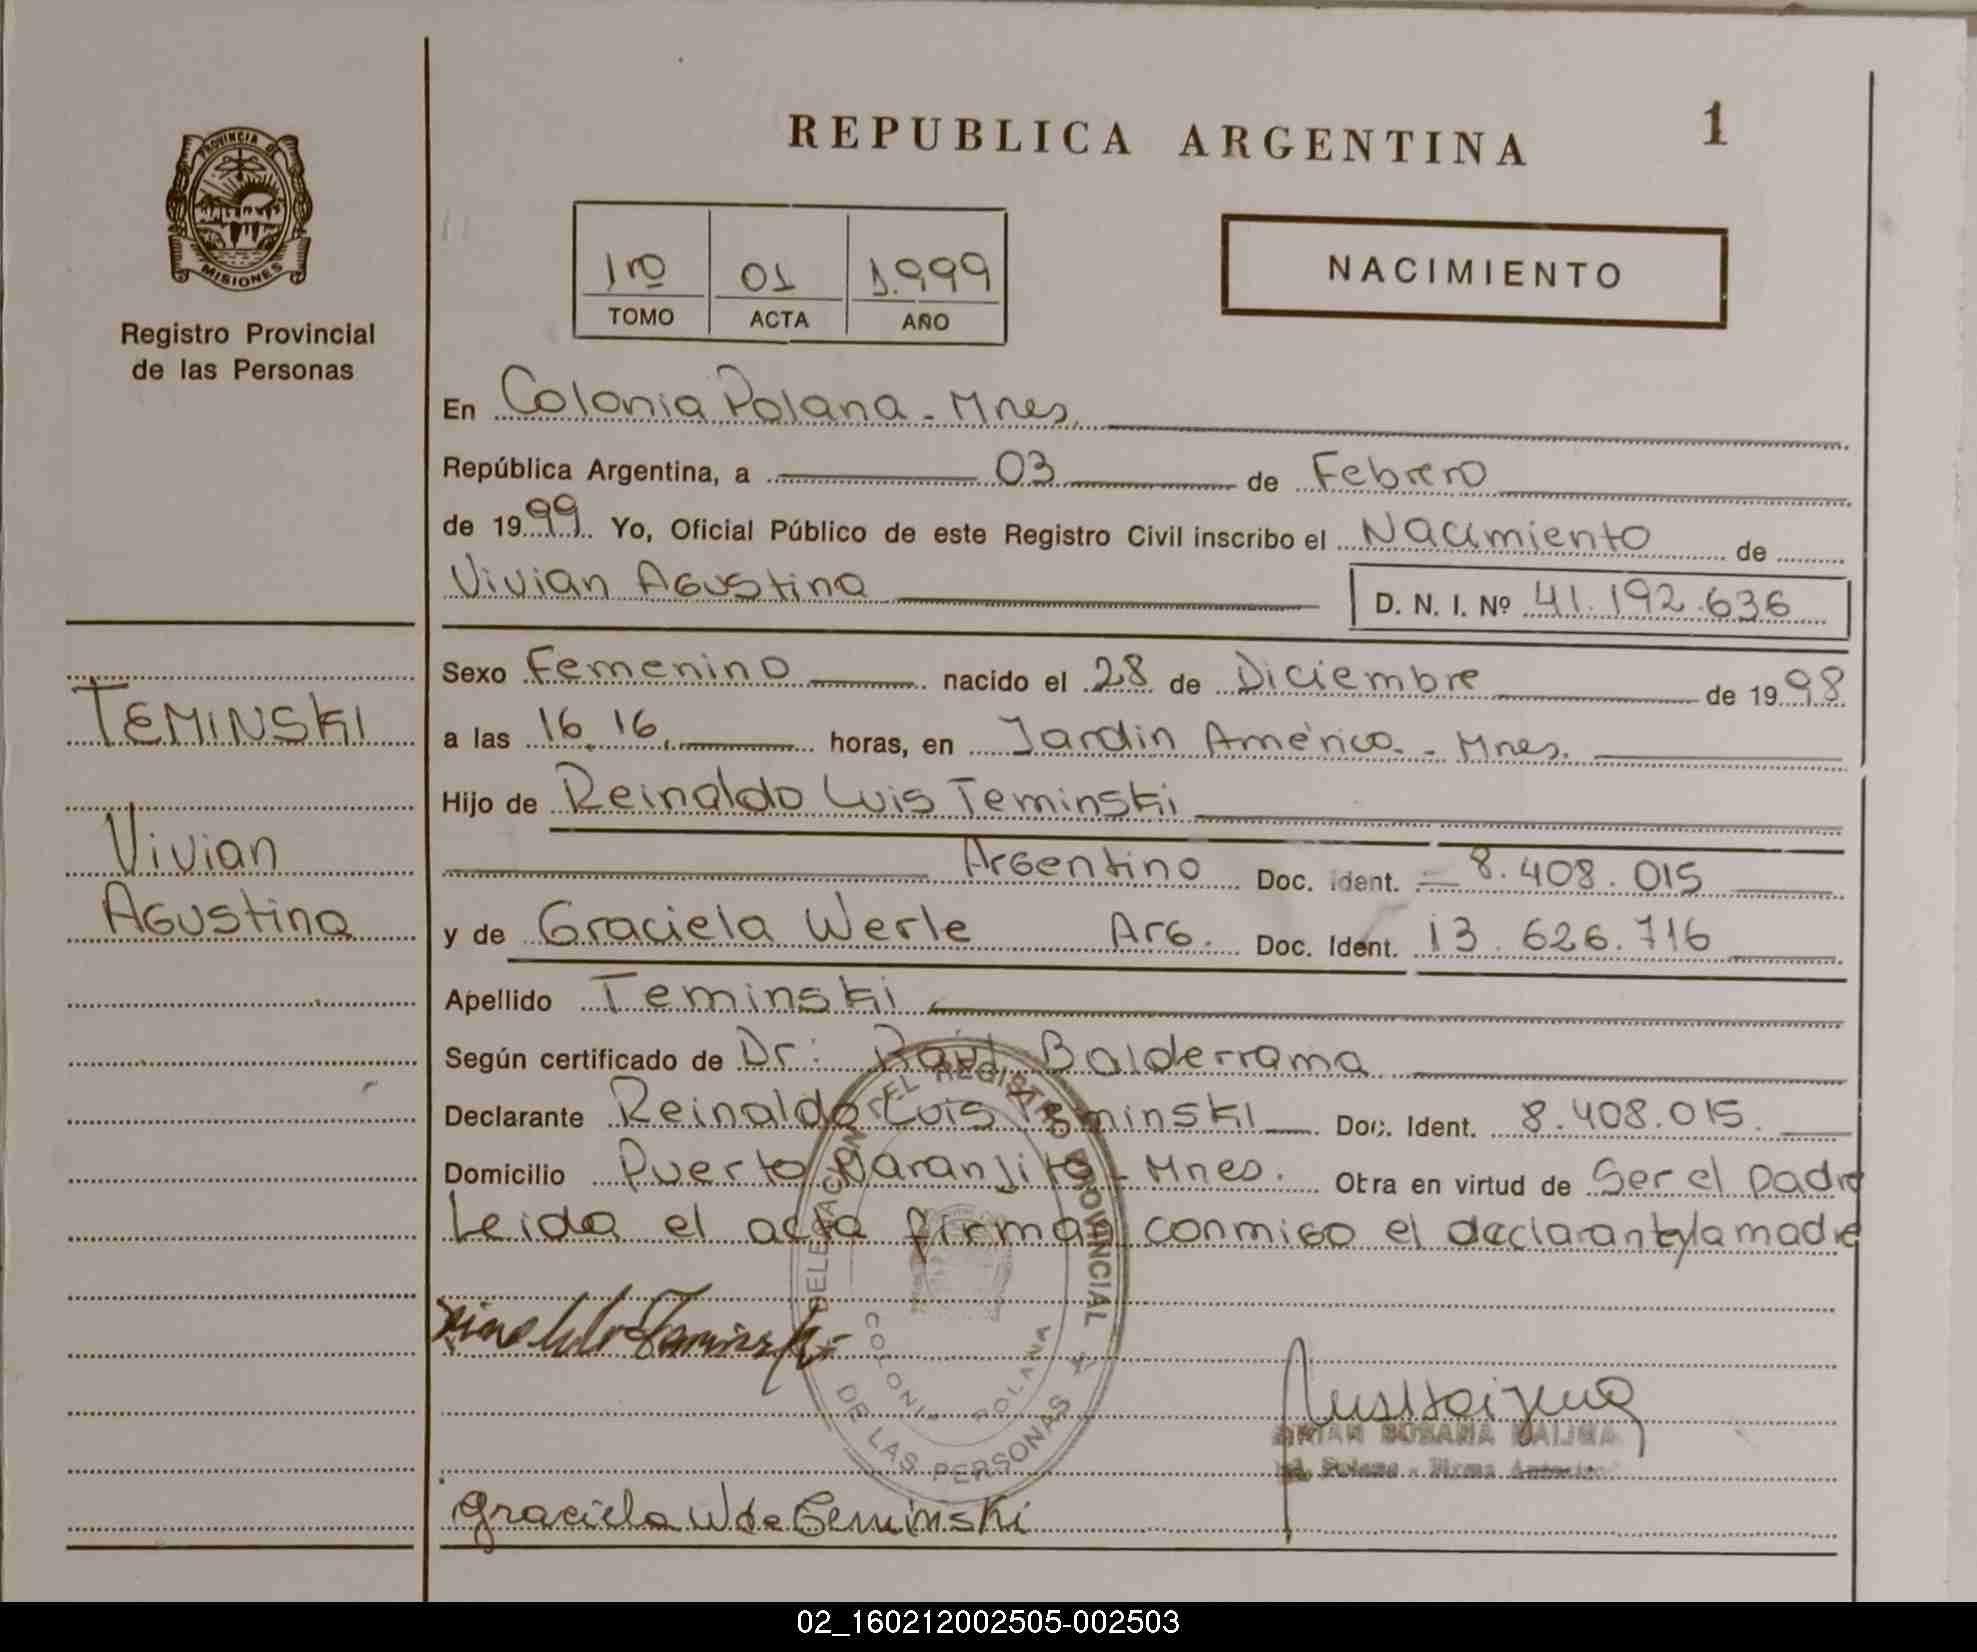 PROVINCIA DE
MISIONES
Registro Provincial
de las Personas
TEMINSKI
Vivian
Agustina
REPUBLICA ARGENTINA
1
1ro 01 1.999
TOMO ACTA AÑO
NACIMIENTO
En Colonia Polana - Mnes.
República Argentina, a 03 de Febrero
de 1999. Yo, Oficial Público de este Registro Civil inscribo el Nacimiento de
Vivian Agustina D. N. I. Nº 41.192.636
Sexo Femenino nacido el 28 de Diciembre de 1998
a las 16.16. horas, en Jardin América - Mnes.
Hijo de Reinaldo Luis Teminski
Argentino Doc. ident. 8.408.015
y de Graciela Werle Arg. Doc. Ident. 13.626.716
Apellido Teminski
Según certificado de Dr: Raul Balderrama
Declarante Reinaldo Luis Teminski Doc. Ident. 8.408.015.
Domicilio Puerto Naranjito - Mnes. Obra en virtud de Ser el padre
Leida el acta firman conmigo el declarante y la madre
DELEGACION DEL REGISTRO PROVINCIAL
DE LAS PERSONAS
COLONIA POLANA
Graciela W de Teminski
02_160212002505-002503